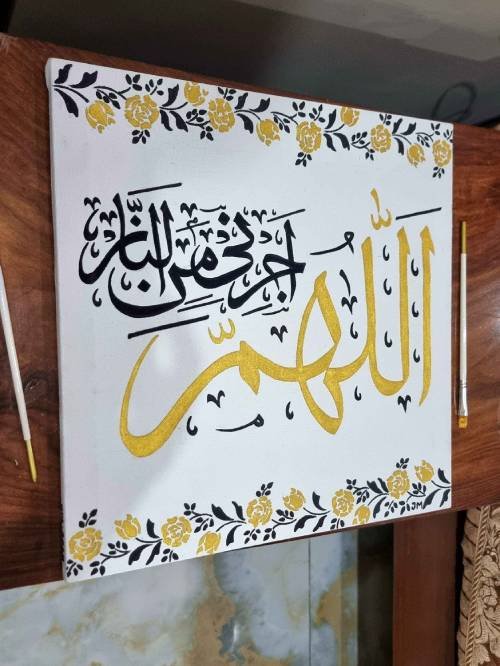 اللّٰهمّ
اجرنی مِنَ النَّار
JM